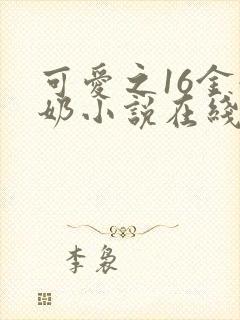 可爱之16金
奶小説在綫
李袅